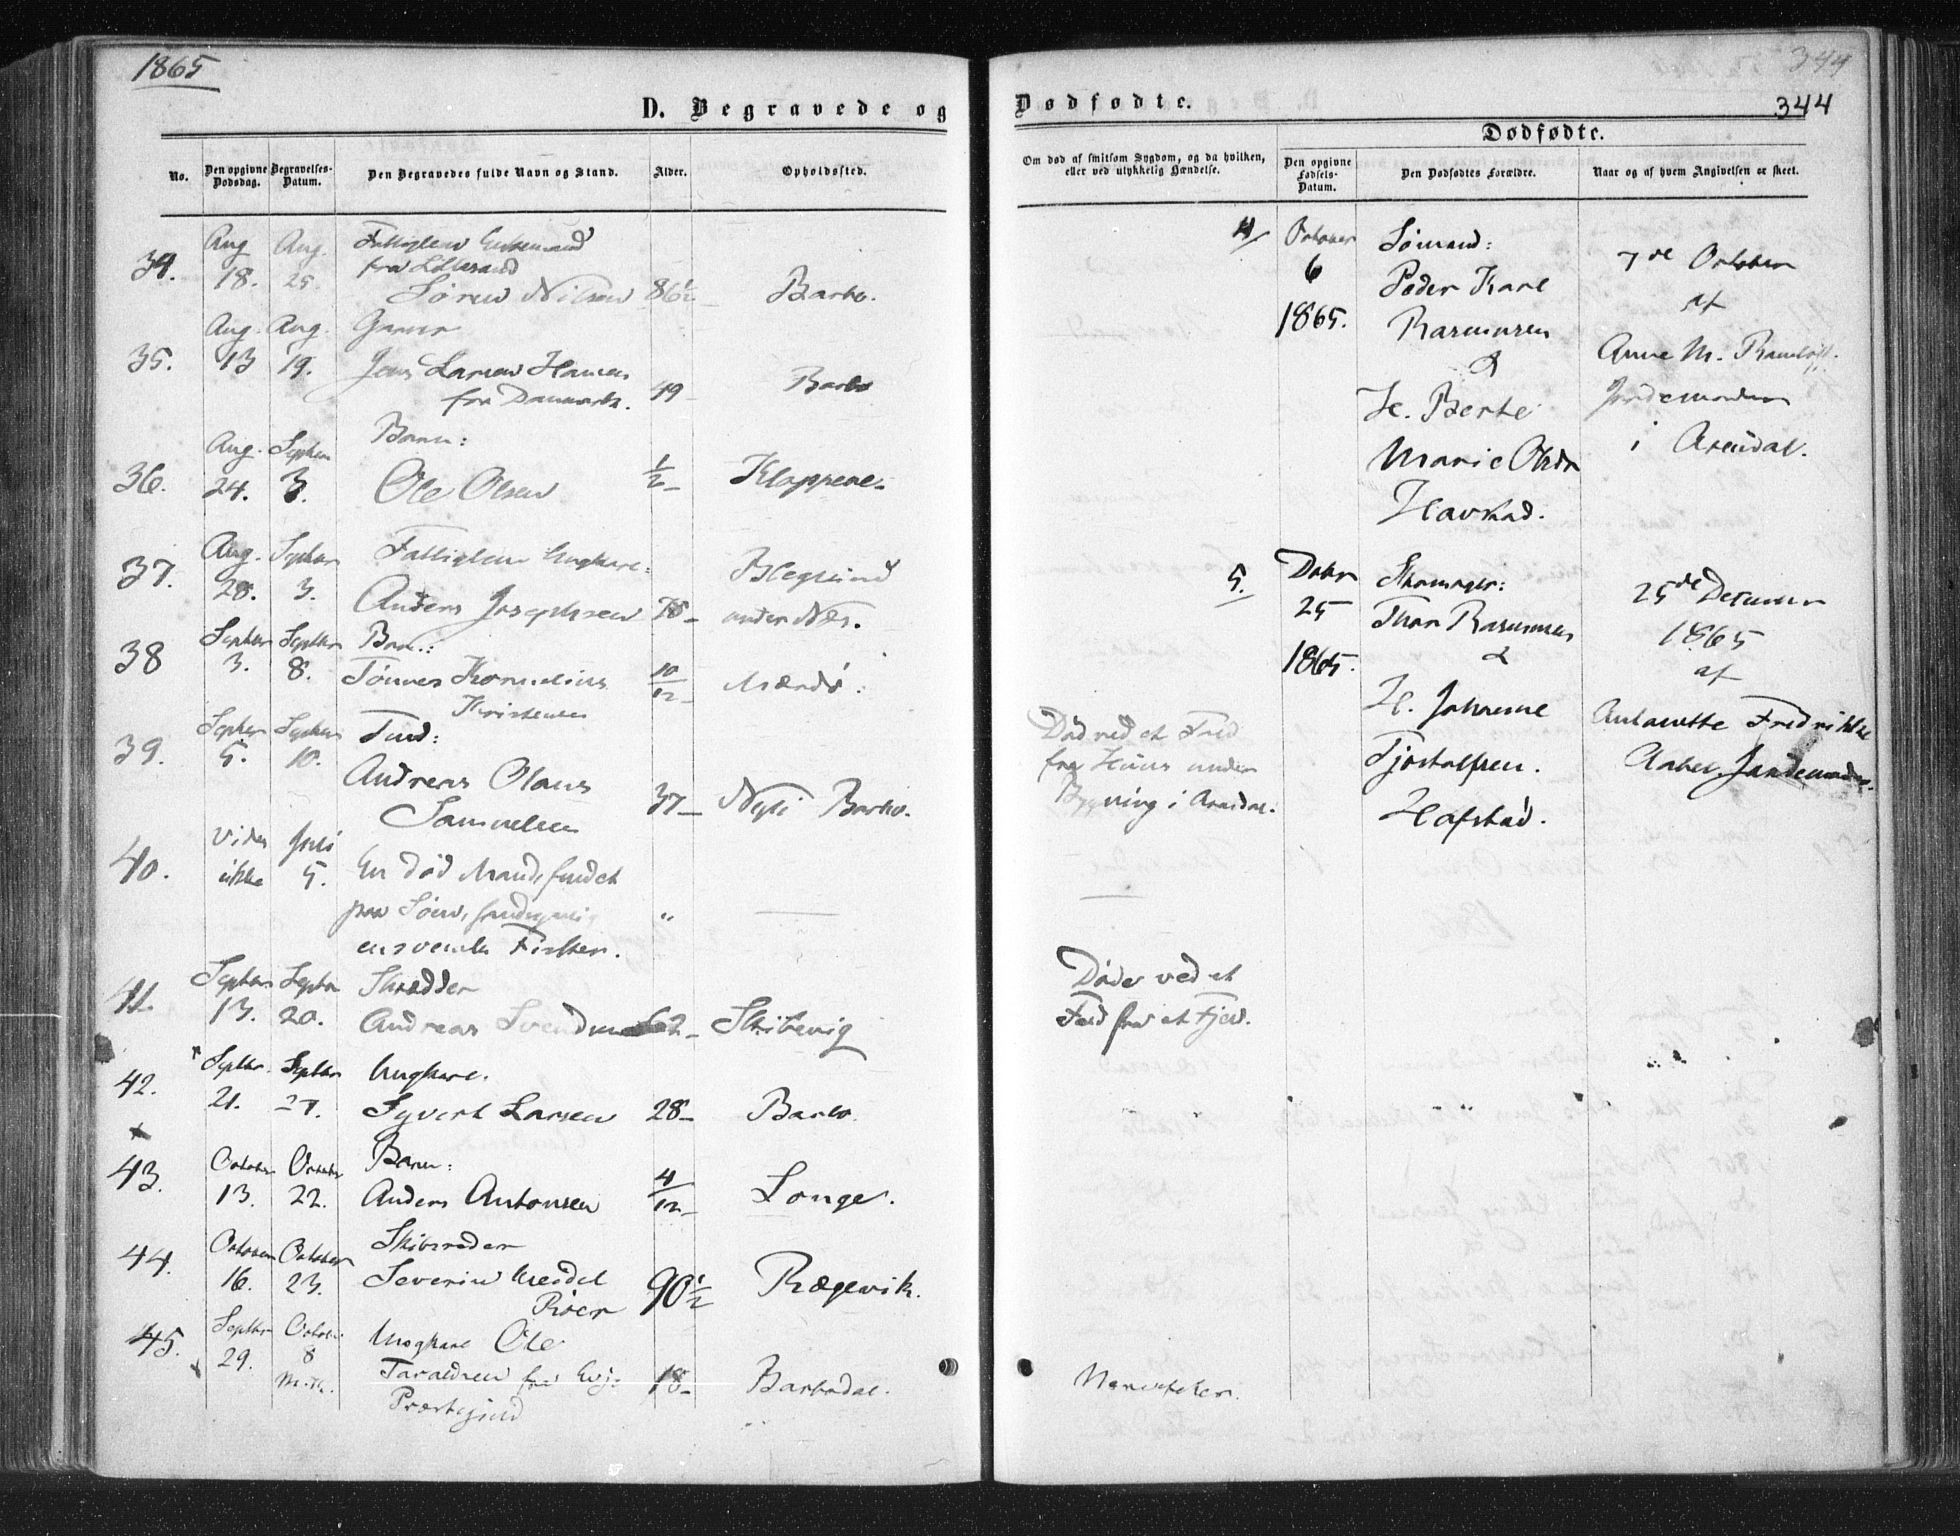 1865
344
344
D. Begravede og Dødfødte.
Dødfødte.
No.
Den opgivne Dødsdag.
Begravelses-Datum.
Den Begravedes fulde Navn og Stand.
Alder.
Opholdssted.
Om død af smitsom Sygdom, og da hvilken, eller ved ulykkelig Hændelse.
Den opgivne Fødsels-Datum.
Den Dødfødtes Forældre.
Naar og af hvem Angivelsen er skeet.
34.
Aug 18.
Aug. 25.
Fattiglem Enkemand
fra Lillesand
Søren Nilsen
86 1/2
Barbo.
35.
Aug. 13
Aug. 19.
Garver
Jens Larsen Hansen
fra Danmark.
49
Barbo
36.
Aug. 24.
Septbr 3.
Barn:
Ole Olsen
1/2
Kloppene
37.
Aug. 28.
Septbr 3.
Fattiglem Ungkarl:
Anders Josephsen
78
under Næs.
38
Septbr 3.
Septbr 8.
Barn:
Tønnes Kornelius
Kristensen
10/12
Mærdø.
39.
Septbr 5.
Septbr 10.
Andreas Olaus
Samuelsen
37
Barbo.
Død ved et Fald
fra Huus under
Bygning i Arendal.
40.
Vides ikke
Juli 5.
En død Mand, fundet
paa Søen,
en svensk Fisker.
"
41.
Septbr 13.
Septbr 20.
Skrædder
Andreas Svendsen
Skibevig
Døde ved et
Fald fra et Fjeld.
42.
Septbr. 21.
Septbr 27.
Ungkarl.
Syvert Larsen
28
Barbo.
43.
October 13.
October 22.
Barn:
Anders Antonsen
4/12
Longe.
44.
October 16.
October 23.
Skibsreder
Severin Ursdel
Riser
90 1/2
Rægevik.
45.
Septbr 29.
October 8
Ungkarl Ole
Taraldsen fra Evje
Præstegjeld
18
Barbodal.
Nervefeber.
4/
October
6
1865.
Sømand:
Peder Karl
Rasmusen
&
H. Berte
Marie Olsdr
Havstad.
7de October
af
Anne M.
Jordemoder
i Arendal.
5.
Decbr
25
1865.
Skomager:
Thor Rasmusen
&
H. Johanne
Tjostolfsen.
Hafstad.
25de December
1865
af
Antonette Fredrikke
Aabel. Jordemoder.